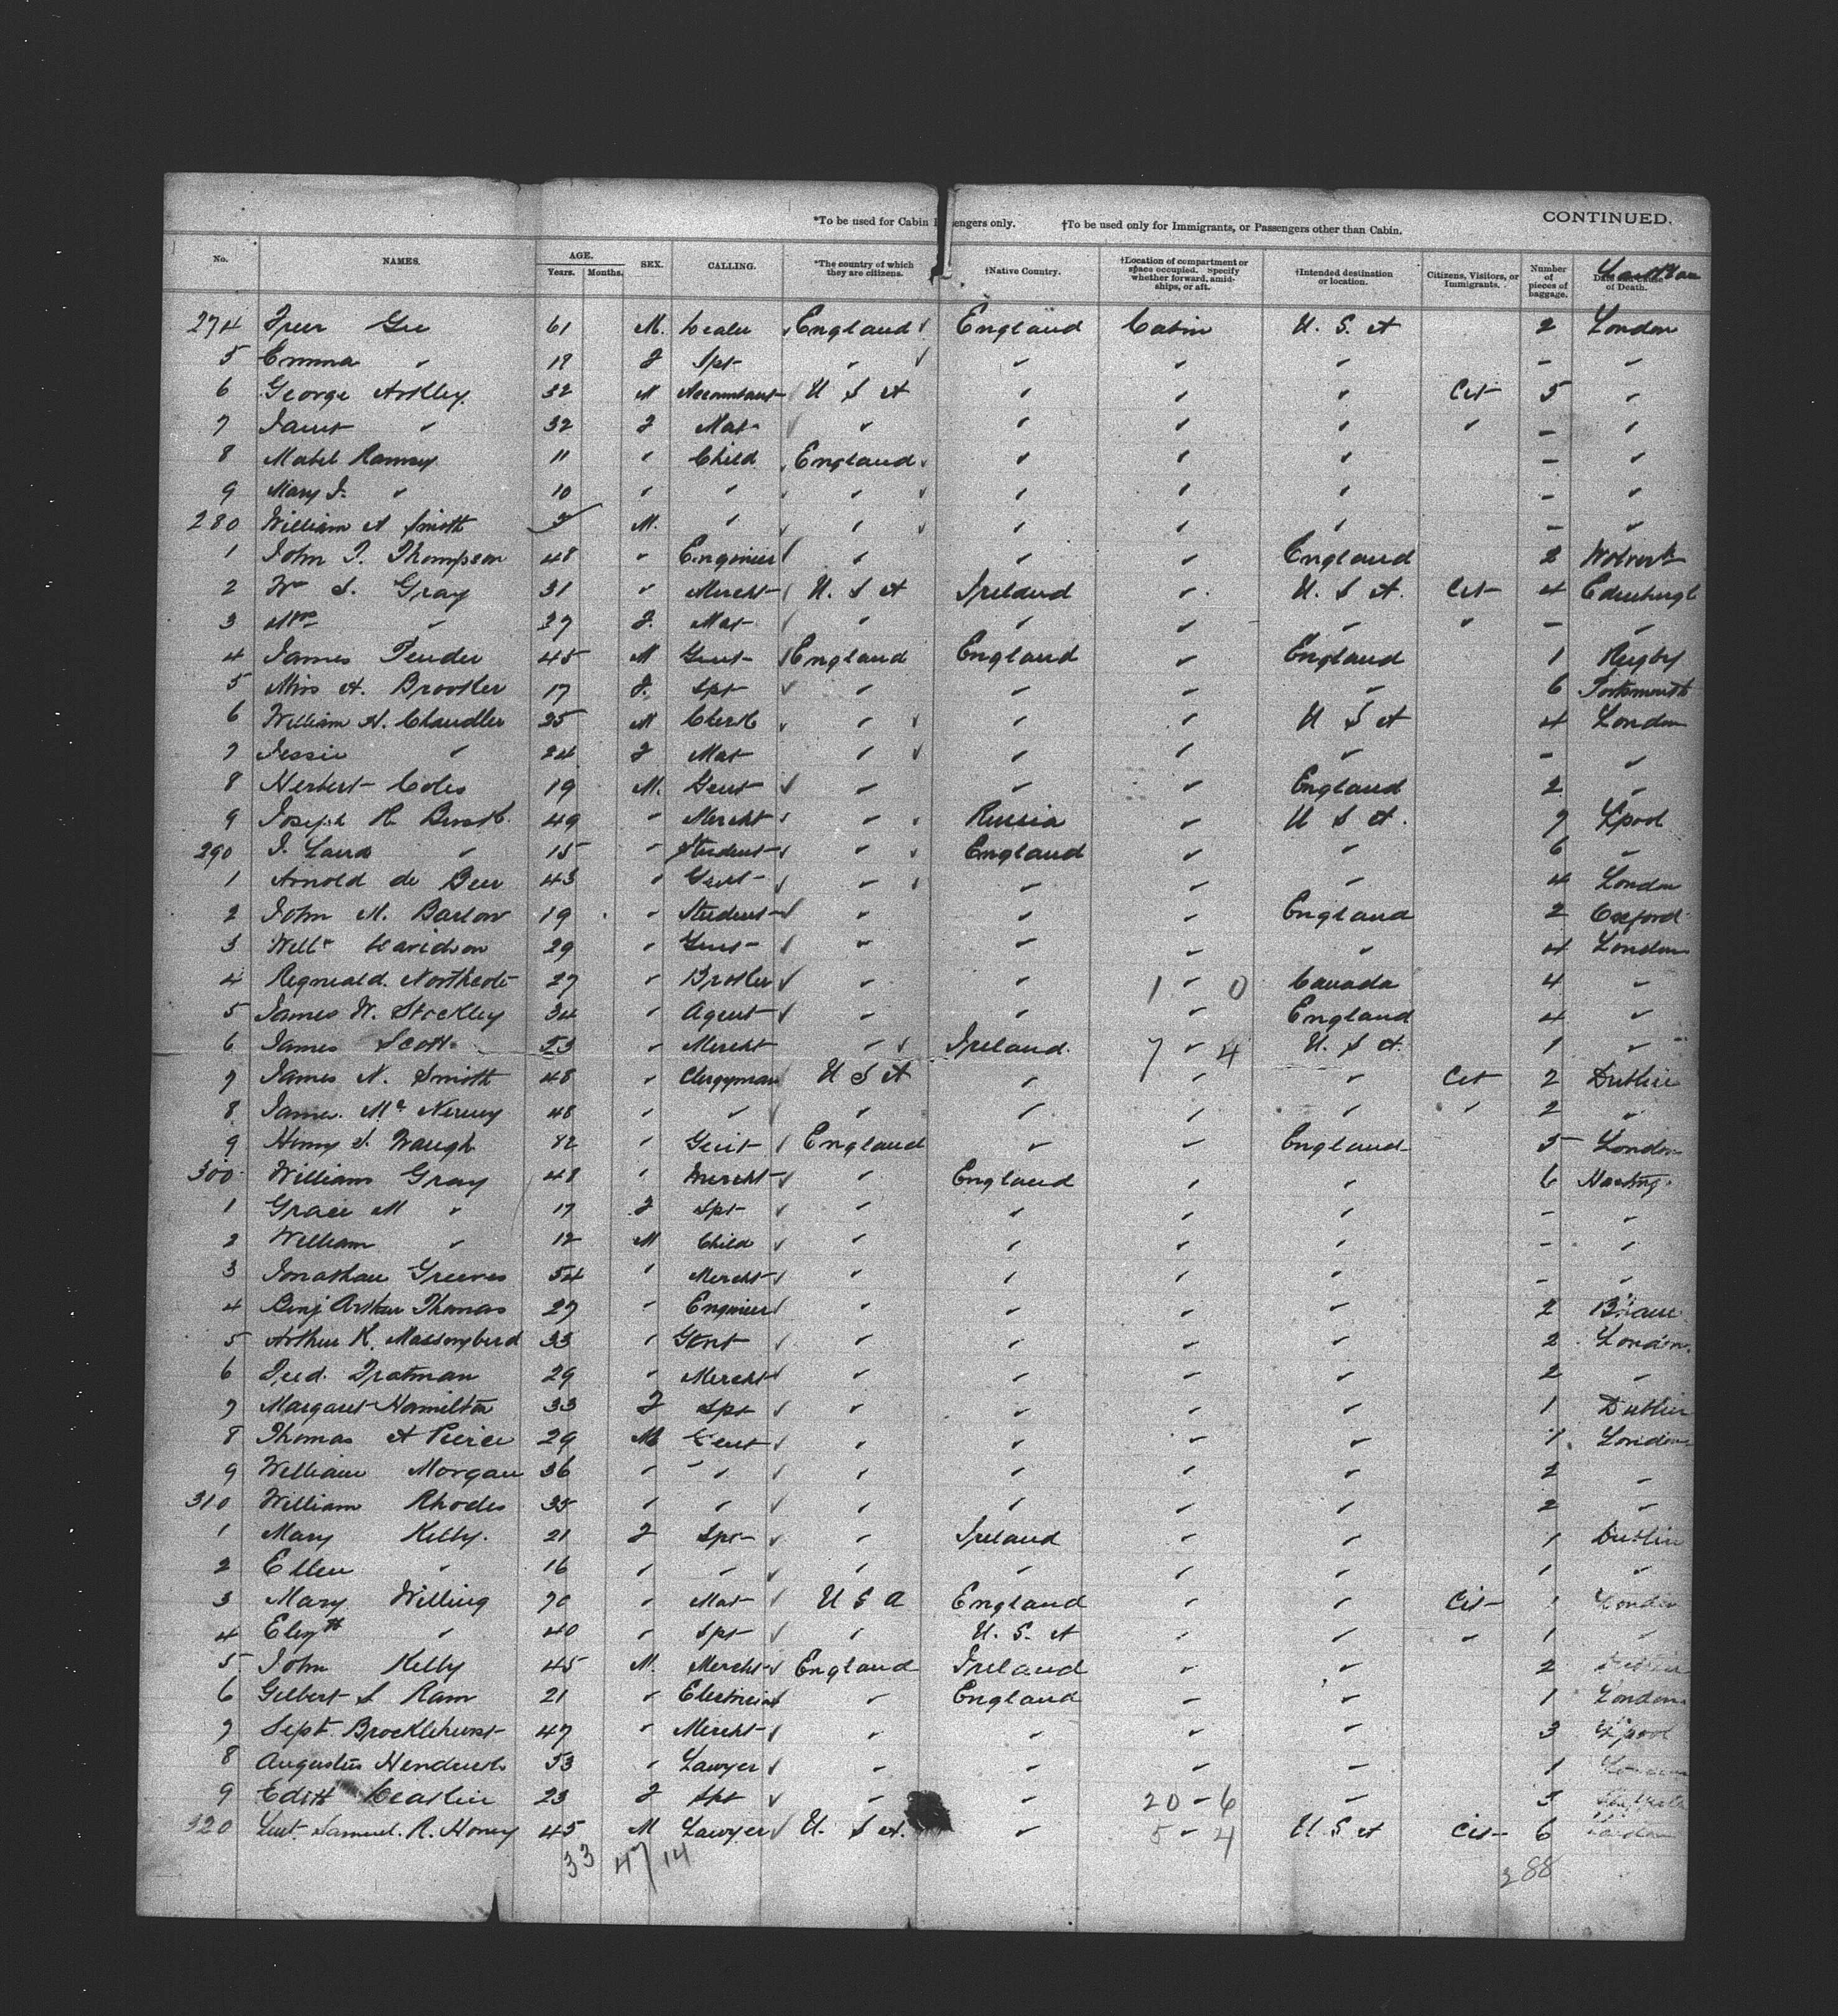 CONTINUED.
*To be used for Cabin Passengers only. †To be used only for Immigrants, or Passengers other than Cabin.
No. NAMES. AGE. Years. Months. SEX. CALLING. *The country of which they are citizens. †Native Country. †Location of compartment or space occupied. Specify whether forward, amidships, or aft. †Intended destination or location. Citizens, Visitors, or Immigrants. Number of pieces of baggage. Date and Cause of Death.
274 Gee 61 M. England England Cabin U. S. A 2 London
5 Emma " 19 F Spr " " " " - "
6 George Arkley 32 M Accountant U S A " " " Cit 5 "
7 Janet " 32 F Mat " " " " " - "
8 Mabel Ramsey 11 " Child England " " " - "
9 Mary J. " 10 " " " " " " - "
280 William A Smith M. " " " " " - "
1 John T. Thompson 48 " Engineer " " " England 2
2 Wm S. Gray 31 " Mercht U. S A Ireland " U. S A. Cit 4 Edinburgh
3 Mrs " 27 F. Mat " " " " " - "
4 James Pender 45 M Gent England England " England 1 Rugby
5 Miss A. Brooker 17 F. Spr " " " " 6 Portsmouth
6 William H. Chandler 25 M Clerk " " " U S A 4 London
7 Jessie " 24 F Mat " " " " - "
8 Herbert Coles 19 M. Gent " " " England 2 "
9 Joseph R 49 " Mercht " Russia " U S A. 7 Lpool
290 " 15 " Student " England " " 6 "
1 Arnold de Beer 43 " Gent " " " " 4 London
2 John M. Barlow 19 " Student " " " England 2 Oxford
3 Davidson 29 " Gent " " " " 4 London
4 Reginald. Northcote 27 " Broker " " 1 - 0 Canada 4 "
5 James W. Stockley 34 " Agent " " " England 4 "
6 James Scott 53 " Mercht " Ireland. 7 - 4 U. S A. 1 "
7 James N. Smith 48 " Clergyman U S A " " " Cit 2 Dublin
8 James. Mc Nerney 48 " " " " " " " 2 "
9 Henry S. Waugh " Gent England " " England 5 London
300 William Gray 48 " Mercht " England " " 6 Hastings
1 Grace M " 17 F Spr " " " " - "
2 William " 12 M Child " " " " - "
3 Jonathan Greeves 54 " Mercht " " " " - "
4 Benj Arthur Thomas 27 " Engineer " " " " 2
5 Arthur K. Massingberd 33 " Gent " " " " 2 London
6 Fred. Tratman 29 " Mercht " " " " 2 "
7 Margaret Hamilton 33 F Spr " " " " 1 Dublin
8 Thomas A Peirce 29 M Gent " " " " 1 London
9 William Morgan 36 " " " " " " 2 "
310 William Rhodes 35 " " " " " " 2 "
1 Mary Kelly. 21 F Spr " Ireland " " 1 Dublin
2 Ellen " 16 " " " " " " 1 "
3 Mary Willing 70 " Mat U S A England " " Cit 1 London
4 Elizth " 40 " Spr " U. S. A " " " 1 "
5 John Kelly 45 M. Mercht England Ireland " " 2 Dublin
6 Gilbert S Ram 21 " Electrician " England " " 1 London
7 Sept. Brocklehurst 47 " Mercht " " " " 3 Lpool
8 Augustus 53 " Lawyer " " " " 1
9 Edith 23 F Spr " " 20 - 6 " 3
320 Lieut. Samuel. R. Honey 45 M Lawyer U. S A. " 5 - 4 U. S A Cit 6 London
33 47 14 288